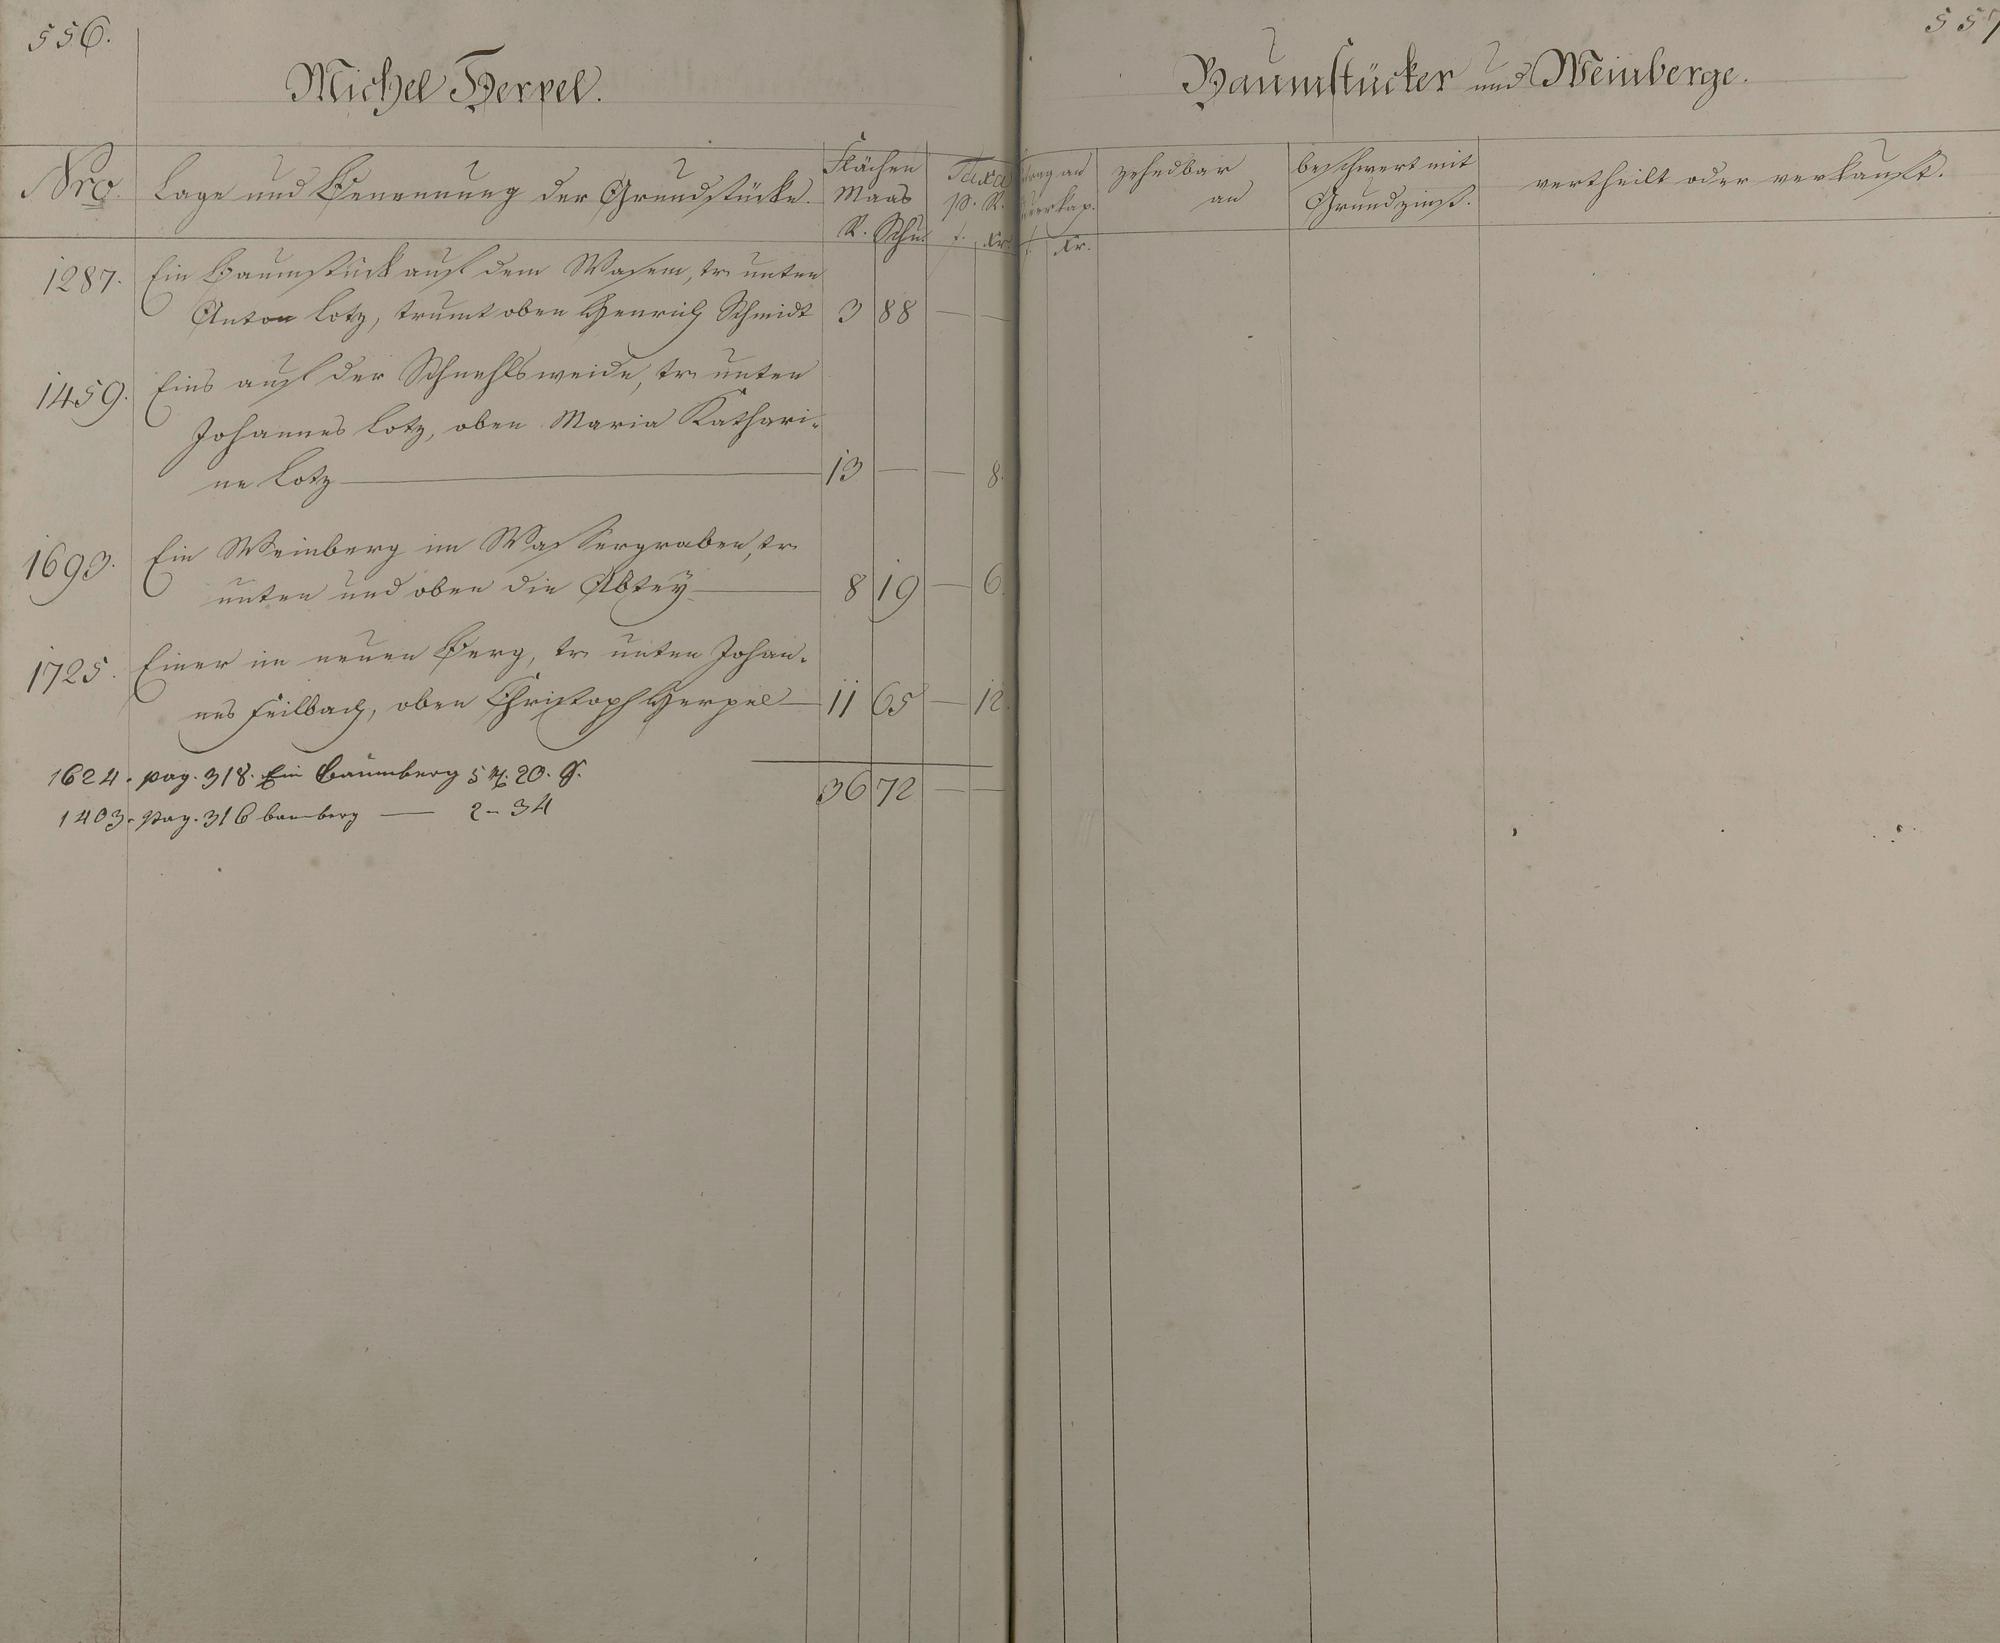 556.
Michel Herpel.
Nro. Lage und Benennung der Grundstücke. Flächen Maas R. Schu. Taxa p. R. f. Kr.
1287. Ein Baumstück auf dem Wasem, tr. unten
Anton Lotz, trumt oben Henrich Schmidt 3 88 — —
1459. Eins auf der Schnehlsweide, tr. unten
Johannes Lotz, oben Maria Kathari-
ne Lotz — 13 — — 8.
1693. Ein Weinberg im Wassergraben, tr.
unten und oben die Abtey — 8 19 — 6.
1725. Einer im neuen Berg, tr. unten Johan-
nes Feilbach, oben Christoph Herpel — 11 65 — 12.
36 72 — —
1624. pag. 318. Ein Baumberg 5 R. 20. S.
1403. pag. 316 bamberg — 2 — 34
557
Baumstücker und Weinberge.
trag an
verkap.
f. Kr.
zehedbar
an
beschwert mit
Grundzinß.
vertheilt oder verkauft.